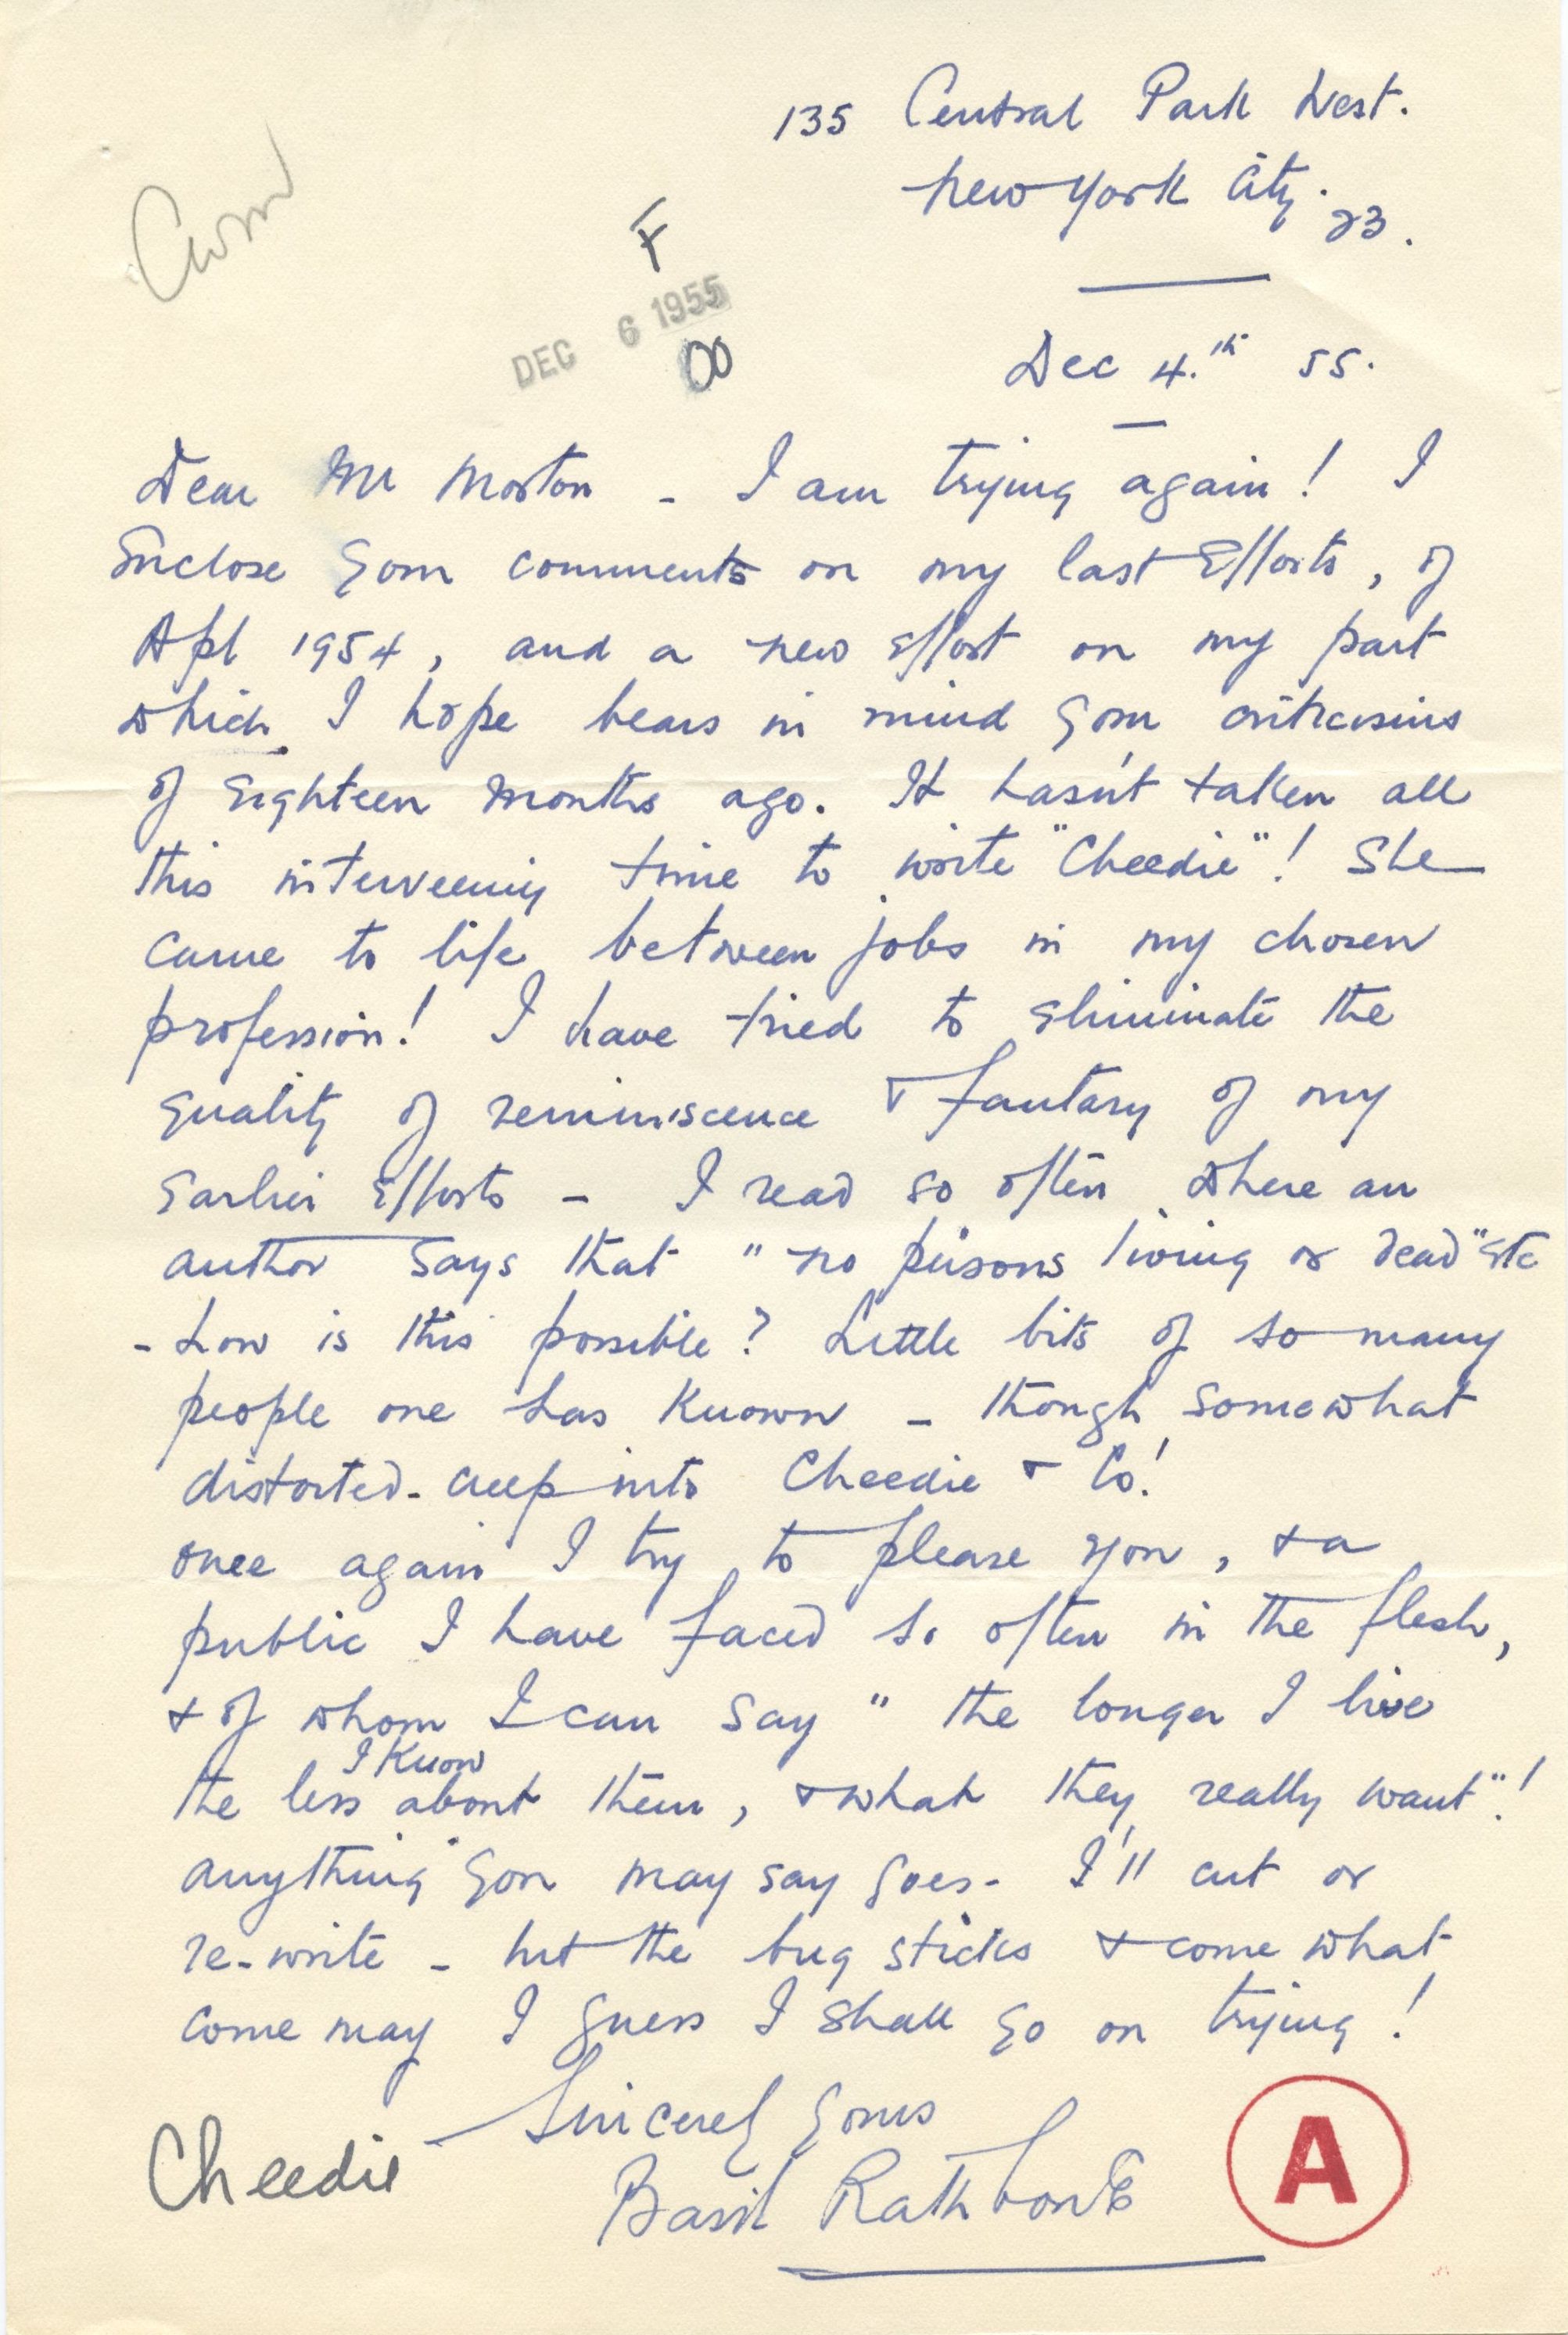 135 Central Park West.
New York City.
23.
Cwm
F
DEC 6 1955
00
Dec 4.th 55.
Dear Mr Morton - I am trying again! I
Enclose your comments on my last Efforts, of
Apl 1954, and a new effort on my part
which I hope bears in mind your criticisms
of Eighteen months ago. It hasn't taken all
this interveening time to write "Cheedie"! She
came to life between jobs in my chosen
profession! I have tried to eliminate the
quality of reminiscence & fantasy of my
Earlier Efforts - I read so often where an
author says that "no persons living or dead" etc
- how is this possible? Little bits of so many
people one has known - though somewhat
distorted - creep into Cheedie & Co!
once again I try to please you, & a
public I have faced so often in the flesh,
& of whom I can say "the longer I live
the less I know about them, & what they really want"!
anything you may say goes - I'll cut or
re-write - but the bug sticks & come what
come may I guess I shall go on trying!
Sincerely yours
Cheedie
Basil Rathbone
A